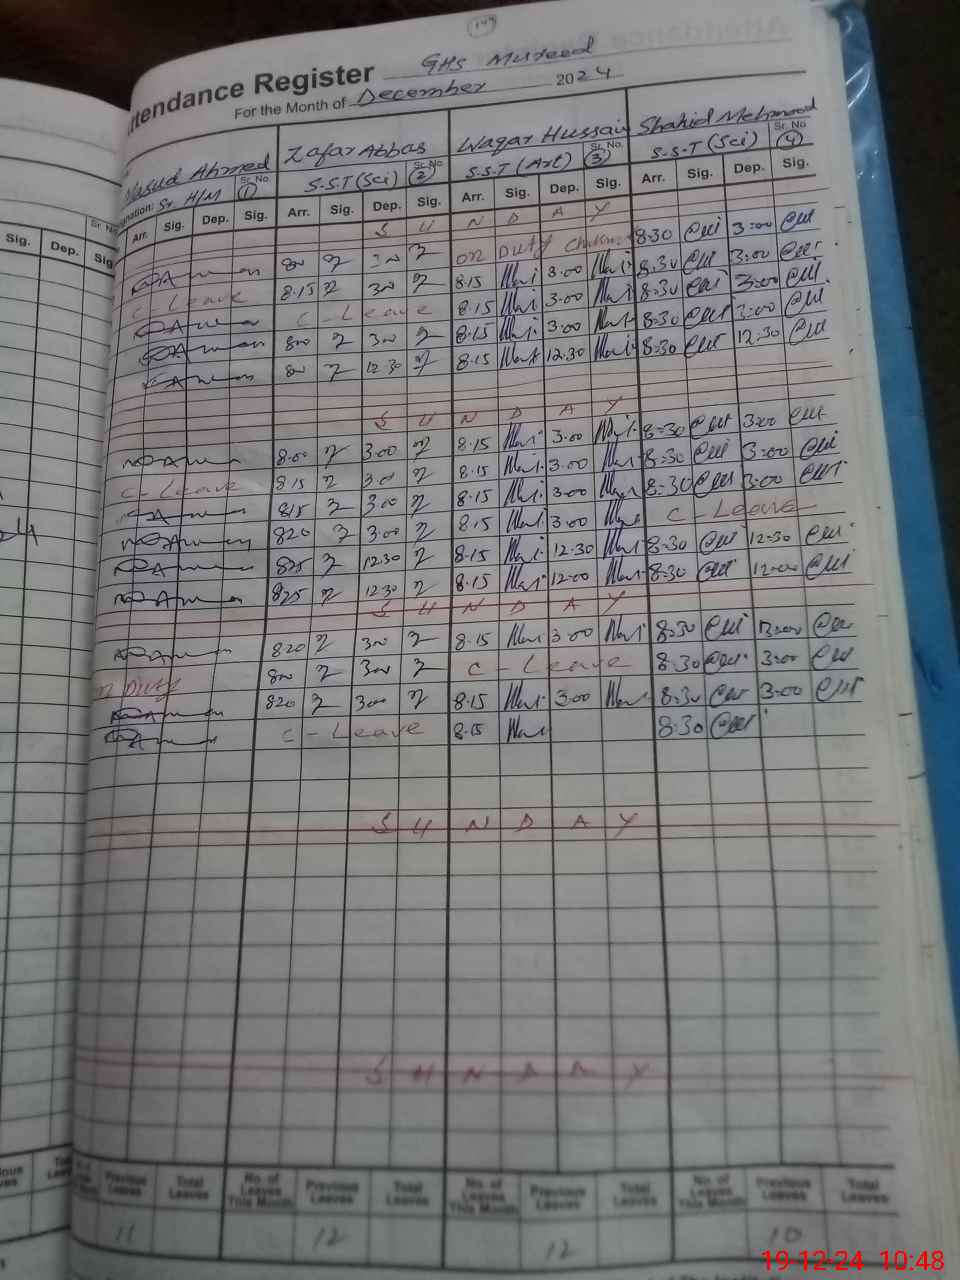 149
Attendance Register GHS Mureed
For the Month of December 2024
Masud Ahmed Zafar Abbas Waqar Hussain Shahid Mehmood
Sr. H/M Sr. No. 1 S.S.T (Sci) Sr. No. 2 S.S.T (Art) Sr. No. 3 S.S.T (Sci) Sr. No. 4
Arr. Sig. Dep. Sig. Arr. Sig. Dep. Sig. Arr. Sig. Dep. Sig. Arr. Sig. Dep. Sig.
S U N D A Y
800 300 on Duty 8-30 3-00
C-Leave 8.15 300 8.15 3.00 8.30 3.00
C-Leave 8.15 3.00 8.30 3.00
800 300 8.15 3.00 8.30 3.00
800 12.30 8.15 12.30 8.30 12.30
S U N D A Y
8.00 3.00 8.15 3.00 8.30 3.00
C-Leave 815 300 8.15 3.00 8.30 3.00
815 3.00 8.15 3.00 8.30 3.00
820 3.00 8.15 3.00 C-Leave
825 12.30 8.15 12.30 8.30 12.30
825 12.30 8.15 12.00 8.30 12.00
S U N D A Y
820 300 8.15 3.00 8.30 3.00
on Duty 800 300 C-Leave 8.30 3.00
820 300 8.15 3.00 8.30 3.00
C-Leave 8.15 8.30
S U N D A Y
S U N D A Y
Previous Leaves Total Leaves No. of Leaves This Month Previous Leaves Total Leaves No. of Leaves This Month Previous Leaves Total Leaves No. of Leaves This Month Previous Leaves Total Leaves
11 12 12 10
19-12-24 10:48